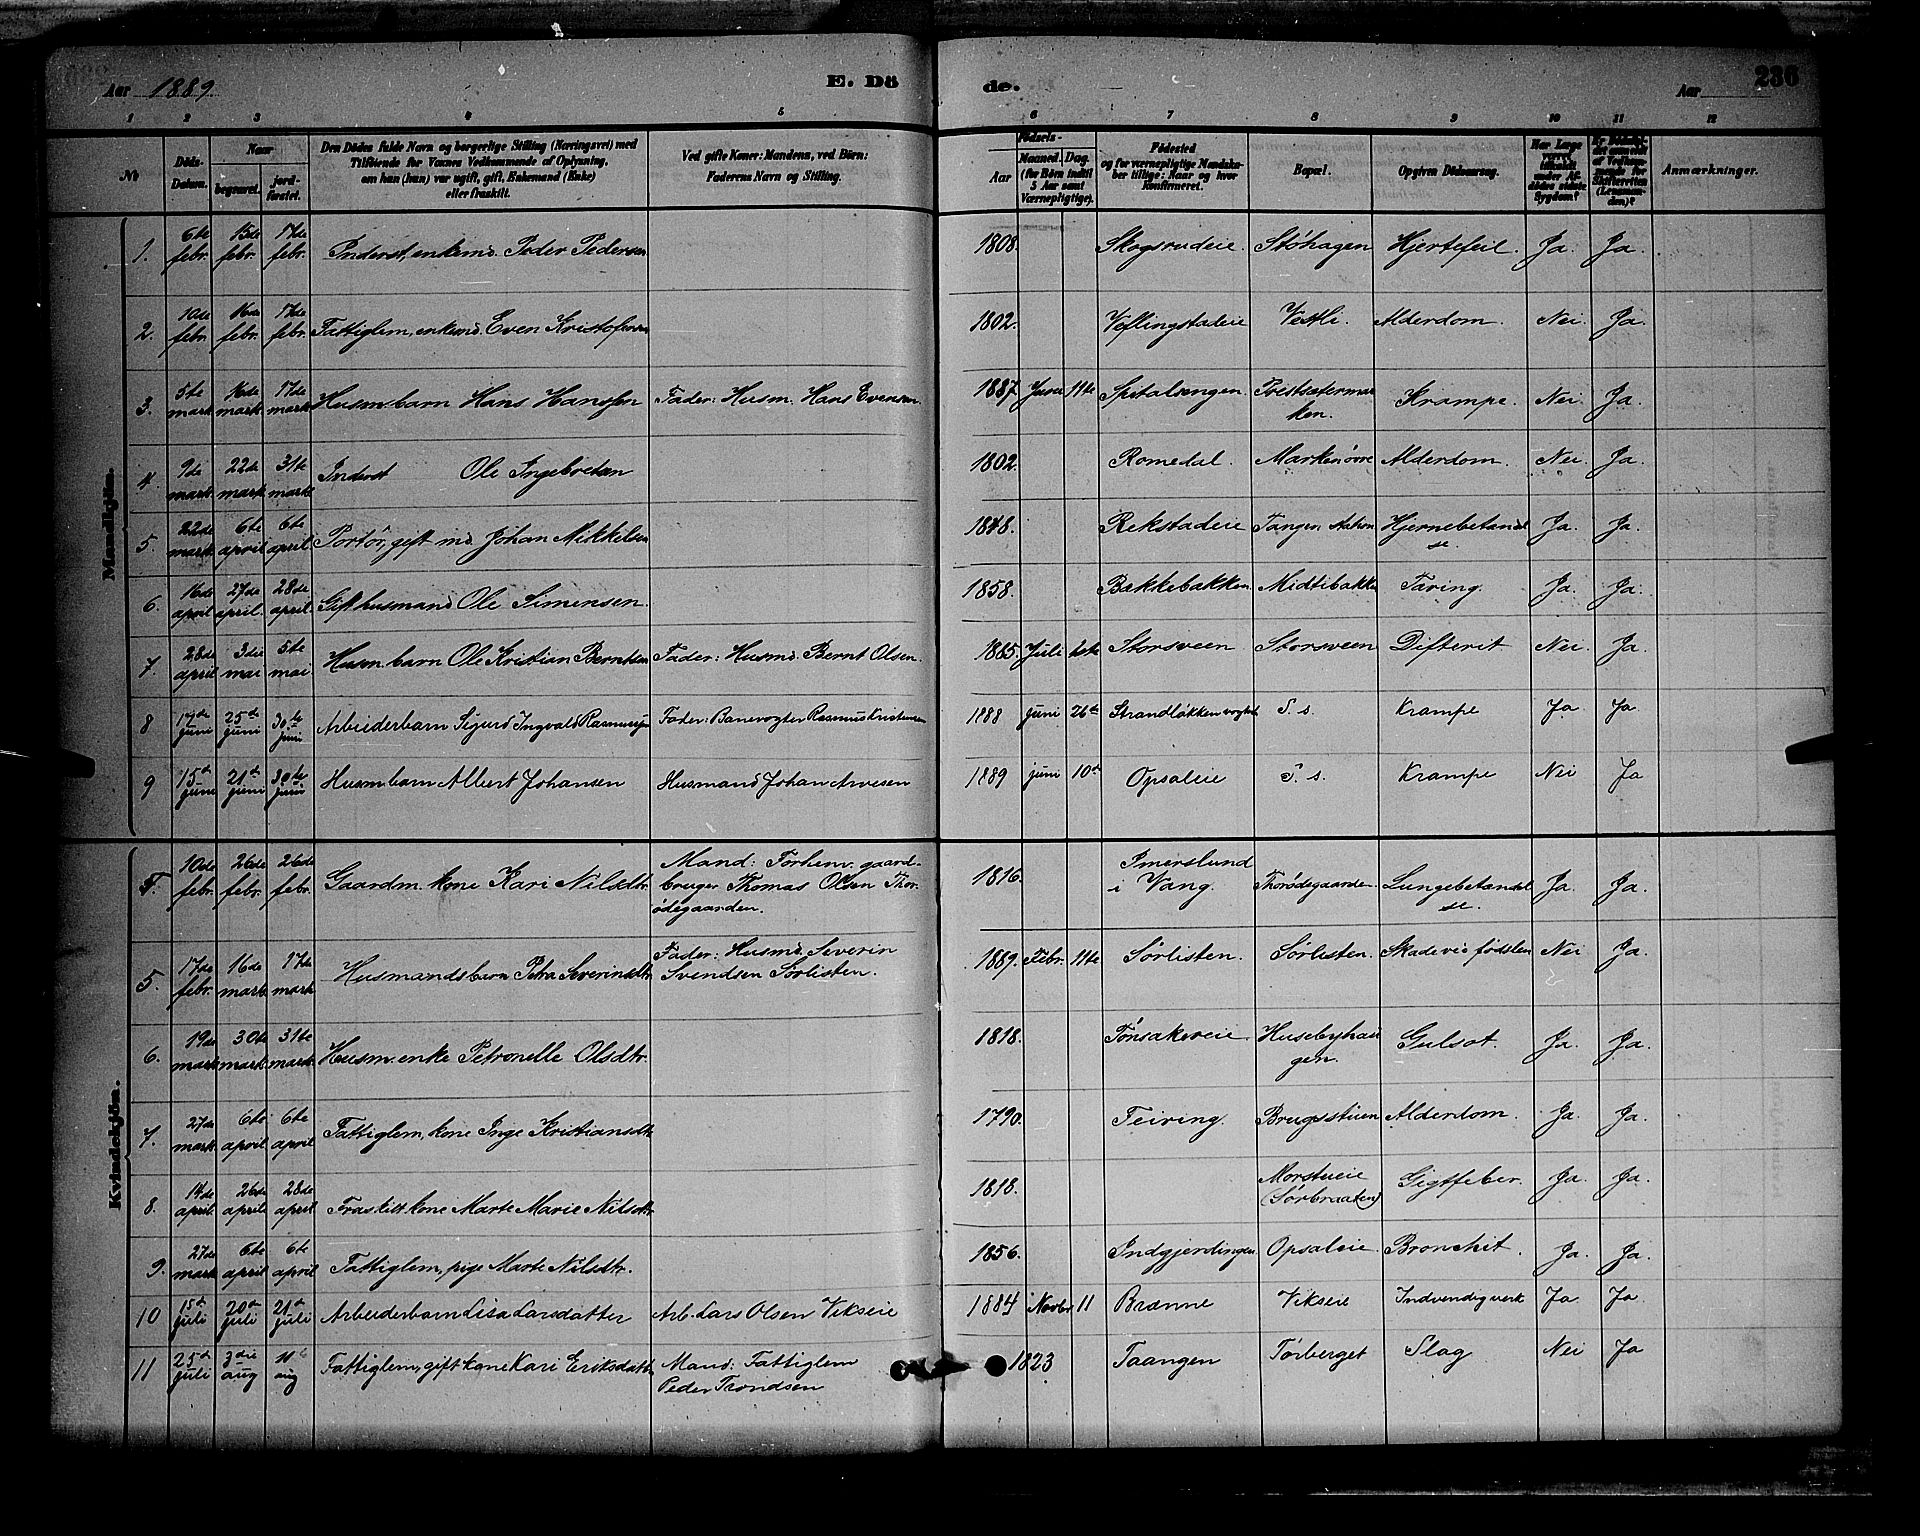 Aar 1889.
E. Dö
de.
236
Aar
1 2 3 4 5 6 7 8 9 10 11 12
No
Döds-
Datum.
Naar
begravet.
jord-
fæstet.
Den Dødes fulde Navn og borgerlige Stilling (Næringsvei) med
Tilföiende for Voxnes Vedkommende af Oplysning,
om han (hun) var ugift, gift, Enkemand (Enke)
eller fraskilt.
Ved gifte Koner: Mandens, ved Börn:
Faderens Navn og Stilling.
Födsels-
Aar
Maaned. Dag.
(for Börn indtil
5 Aar samt
Værnepligtige).
Födested
og for værnepligtige Mandska-
ber tillige: Naar og hvor
konfirmeret.
Bopæl.
Opgiven Dödsaarsag.
Anmærkninger.
Mandkjön.
1. 6te febr. 15de febr. 17de febr. Inderst, enkemd. Peder Pedersen 1808. Skogsrudeie. Støhagen Hjertefeil Ja. Ja.
2. 10de febr. 16de febr. 17de febr. Fattiglem, enkemd. Even Kristofersen 1802. Veflingstadeie Vestli. Alderdom. Nei. Ja.
3. 5te mark 16de mark 17de mark Husm.barn Hans Hansen Fader: Husm. Hans Evensen 1887. Juni 11te Spitalsengen Prestsætermar
ken. Krampe. Nei. Ja.
4. 9de mark 22de mark 31te mark Inderst Ole Ingebretsen 1802. Romedal. Marken øvre Alderdom. Nei. Ja.
5. 22de mark 6te april 6te april Portør, gift md. Johan Mikkelsen 1848. Rekstadeie Tangen station Hjernebetændel
se. Ja. Ja.
6. 16de april 27de april. 28de april. Gift husmand Ole Simensen. 1858. Bakkebakken Midtibakken Tæring. Ja. Ja.
7. 28de april 3die mai 5te mai Husm.barn Ole Kristian Berntsen Fader: Husmd. Bernt Olsen. 1885. Juli Storsveen Storsveen Difterit Nei. Ja.
8 17de juni 25de juni 30te juni Arbeiderbarn Sigurd Ingvald Rasmussen Fader: Banevogter Rasmus Kristensen 1888 juni 26de Strandløkken S. s. Krampe Ja Ja
9 15de juni 21de juni 30te juni Husm.barn Albert Johansen Husmand Johan Arvesen 1889 juni 10de Opsaleie S. s. Krampe Nei Ja
Kvindekjön.
10de febr. 26de febr. 26de febr. Gaardm. kone Kari Nilsdtr. Mand: Forhen. gaard-
bruger Thomas Olsen Thor-
ødegaarden. 1816. Imerslund
i Vang. Thorødegaarden. Lungebetændel
se. Ja. Ja.
5. 17de febr. 16de mark 17de mark Husmandsbarn Petra Severinsdtr. Fader: Husmd. Severin
Svendsen Sørlisten. 1889. Febr. 11te Sørlisten. Sørlisten. Skade ved fødselen Nei. Ja.
6. 19de mark 30de mark 31te mark. Husm. enke Petronelle Olsdtr. 1818. Tønsakereie. Husebyhau
gen. Gulsot. Ja. Ja.
7. 27de mark. 6te april 6te april Fattiglem, kone Inge Kristiansdtr. 1790. Feiring. Brugsstuen Alderdom. Ja. Ja.
8. 14de april. 26de april 28de april Fraskilt kone Marte Marie Nilsdtr. 1818. Morstueie
(Sørbraaten) Gigtfeber. Ja. Ja.
9. 27de mark 6te april 6te april Fattiglem, pige Marte Nilsdtr. 1856. Indgjerdingen Opsaleie. Bronchit. Ja. Ja.
10 15de juli 20de juli 21de juli Arbeiderbarn Lisa Larsdatter Arb. Lars Olsen Vikseie 1884 Novbr 11 Brænne Vikseie Indvendig verk Ja. Ja
11 25de juli 3die aug 11 aug Fattiglem, gift kone Kari Eriksdatter Mand: Fattiglem
Peder Trondsen 1823 Taangen Torberget Slag Nei Ja